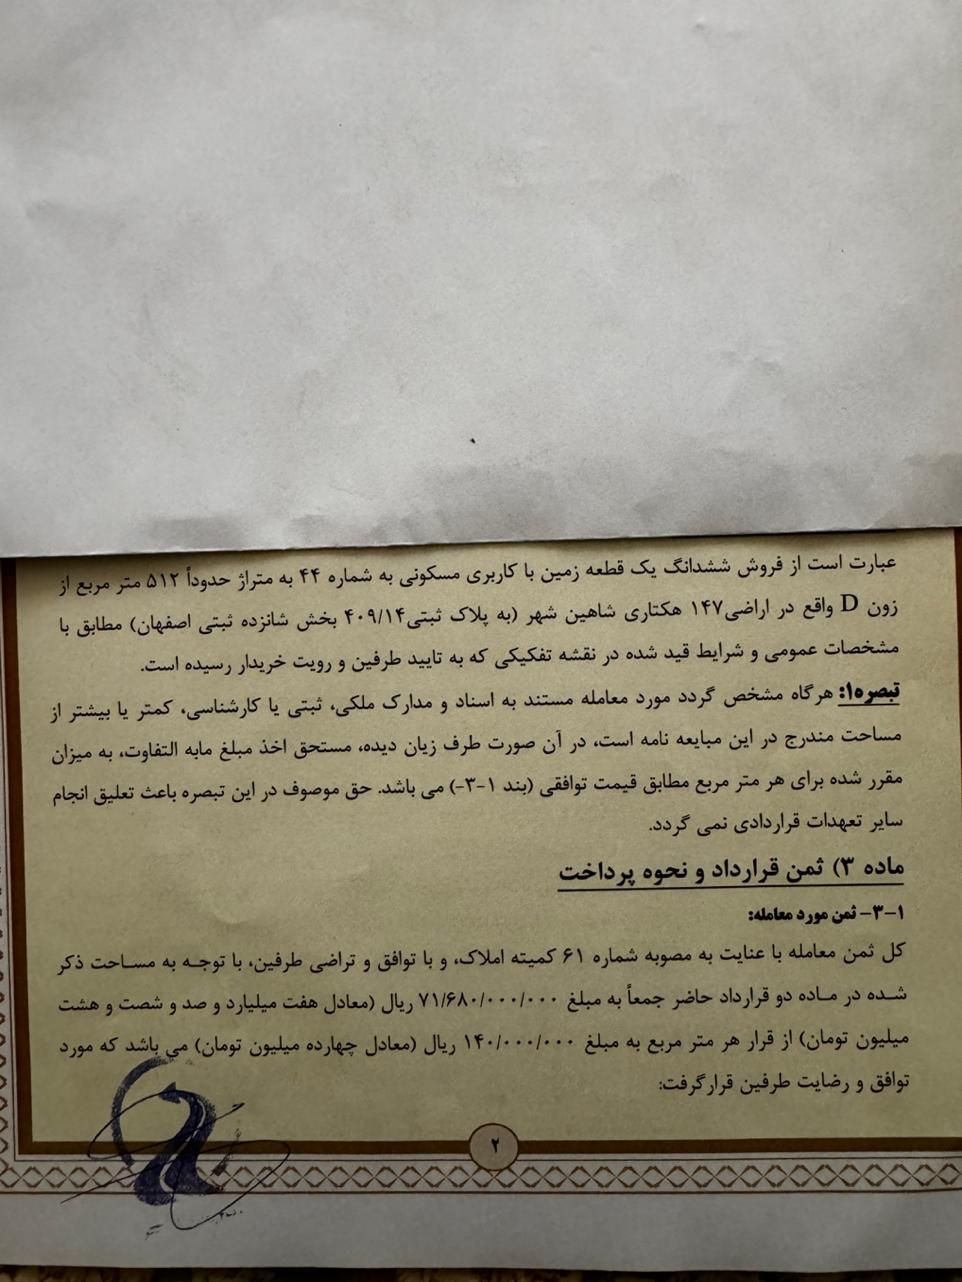 عبارت است از فروش ششدانگ یک قطعه زمین با کاربری مسکونی به شماره ۴۴ به متراژ حدوداً ۵۱۲ متر مربع از
زون D واقع در اراضی۱۴۷ هکتاری شاهین شهر (به پلاک ثبتی۴۰۹/۱۴ بخش شانزده ثبتی اصفهان) مطابق با
مشخصات عمومی و شرایط قید شده در نقشه تفکیکی که به تایید طرفین و رویت خریدار رسیده است.
تبصره۱: هرگاه مشخص گردد مورد معامله مستند به اسناد و مدارک ملکی، ثبتی یا کارشناسی، کمتر یا بیشتر از
مساحت مندرج در این مبایعه نامه است، در آن صورت طرف زیان دیده، مستحق اخذ مبلغ مابه التفاوت، به میزان
مقرر شده برای هر متر مربع مطابق قیمت توافقی (بند ۱-۳-) می باشد. حق موصوف در این تبصره باعث تعلیق انجام
سایر تعهدات قراردادی نمی گردد.
ماده ۳) ثمن قرارداد و نحوه پرداخت
۱-۳- ثمن مورد معامله:
کل ثمن معامله با عنایت به مصوبه شماره ۶۱ کمیته املاک، و با توافق و تراضی طرفین، با توجه به مساحت ذکر
شده در ماده دو قرارداد حاضر جمعاً به مبلغ ۷۱/۶۸۰/۰۰۰/۰۰۰ ریال (معادل هفت میلیارد و صد و شصت و هشت
میلیون تومان) از قرار هر متر مربع به مبلغ ۱۴۰/۰۰۰/۰۰۰ ریال (معادل چهارده میلیون تومان) می باشد که مورد
توافق و رضایت طرفین قرارگرفت:
۲